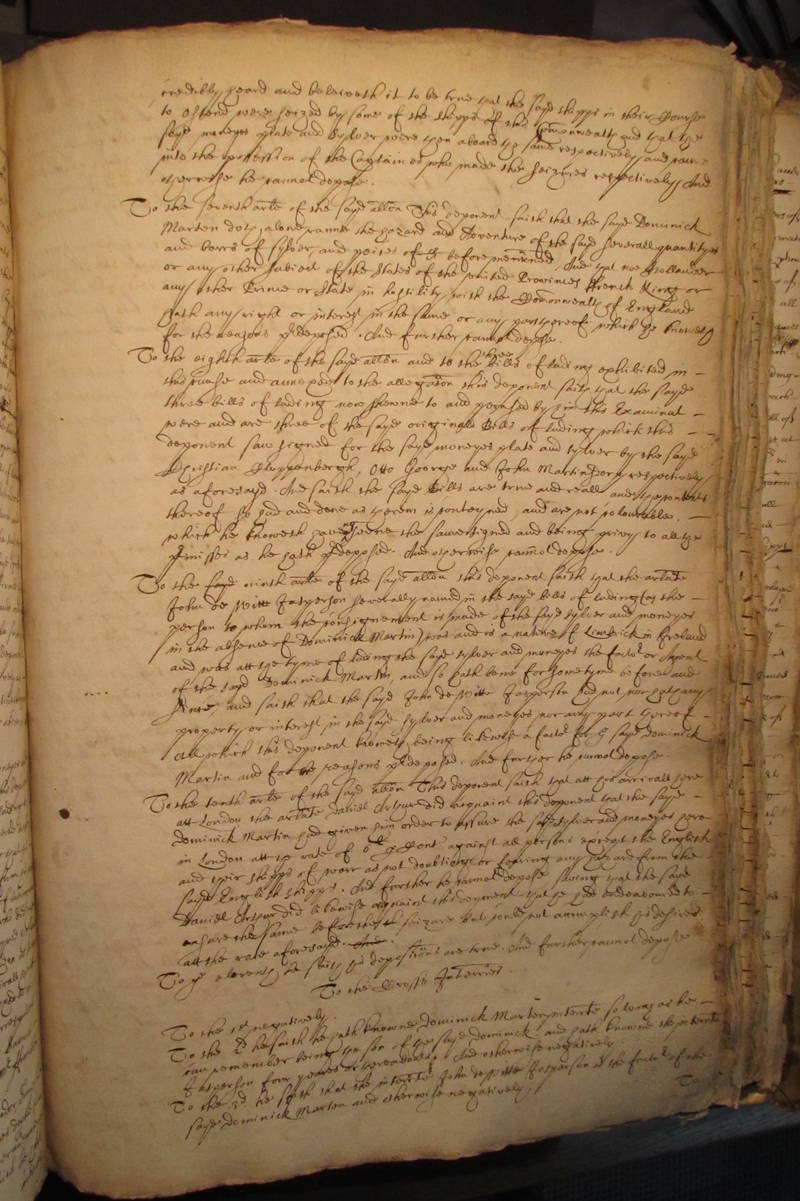 credibly heard and beleiveth it to be true that the sayd shipps in their Course
to Ostend were seized by some of the shipps of this Comonwealth and that the
sayd moneys plate and sylver were then aboard the same respectively and came
into the possession of the Captaines who made the seizures respectively And
otherwise he cannot depose.
To the seventh arle of the sayd allon This deponent saith that the sayd Dominick
Marten doth alone runne the hazard and Adventure of the sayd severall quantityes
and barrs of sylver, and peices of 8t before mentioned And that noe Hollander
or any other subiect of the States of the united Provinces french King or
any other Prince or State in hostility with the Comonwealth of England
hath any right or interest in the same or any part thereof which he knoweth
for the reasons predeposed. And further cannot depose.
To the eighth arle of the sayd allon and to the three bills of lading exhibited in
this cause and annexed to the allegation this deponent saith that the sayd
three bills of lading now shewne to and perused by him this Examinat
were and are three of the sayd originall Bills of lading which this
deponent saw signed for the sayd moneyes plate and sylver by the sayd
Christian Cloppenbergh, Otto George and John Martinson respectively
as aforesayd. And saith the sayd Bills are true and reall and the contents
thereof so had and done as therein is conteyned and are not colourable.
which he knoweth having seene the same signed and being privy to all the
premisses as he hath predeposed. And otherwise cannot depose.
To the sayd ninth arle of the sayd allon this deponent saith that the arlate
John de Witte Jasperson severally named in the sayd bills of lading (as the
person to whom the consignement is made of the sayd sylver and moneyes
in the absence of Dominick Martin) was and is a native of Limbrick in Ireland
and was att the tyme of lading the sayd sylver and moneyes the factor or Agent
of the sayd Dominick Martin, and so hath bene for sometyme before and
since and saith that the sayd John de Witte Jasperson hed not nor hath any
property or interest in the sayd sylver and moneyes nor any part thereof
All which this deponent knoweth being likewise a factor for the sayd dominick
Martin and for the reasons predeposed. And further he cannot depose.
To the tenth arle of the sayd allon This deponent saith that att his arrivall here
att London the arlate Daniel Arthur did acquaint this deponent that the sayd
dominick Martin had given him order to assure the sayd sylver and moneyes here
in London att the rate of 6 per Cent against all persons except the English
and their shipps of warr as not doubting or fearing any hazard from the
sayd English shipps. And further he cannot depose saving that the sayd
Daniel Arthur did likewise acquaint this deponent that he had endeavoured to
ensure the same before the seizure but could not accomplish his desires
att the rate aforesayd. And.
To the eleventh he saith his depositions are true. And further cannot depose
To the Crosse Interries.
To the 1st negatively.
To the 2d he saith he hath knowne dominick Marten interrate so long as he
can remember being the son of the sayd dominick and hath knowne the interrate
Jasperson four yeares or thereabouts. And otherwise negatively
To the 3d he saith that the interrate John de Witte Jasperson is the factor of the
sayd dominick Marten and otherwise negatively.
To